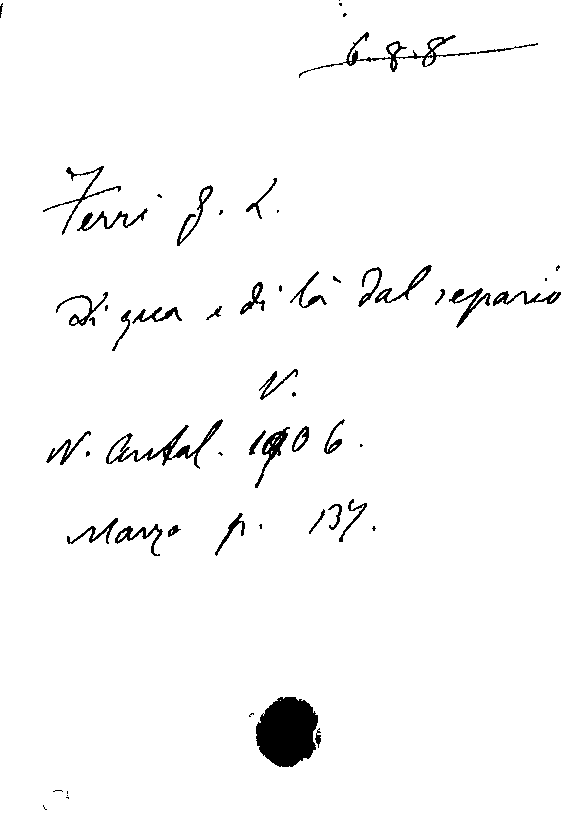 6.8.8
Ferri G. L.
Di qua e di là dal separio
V.
N. Antal. 1906.
Marzo p. 137.